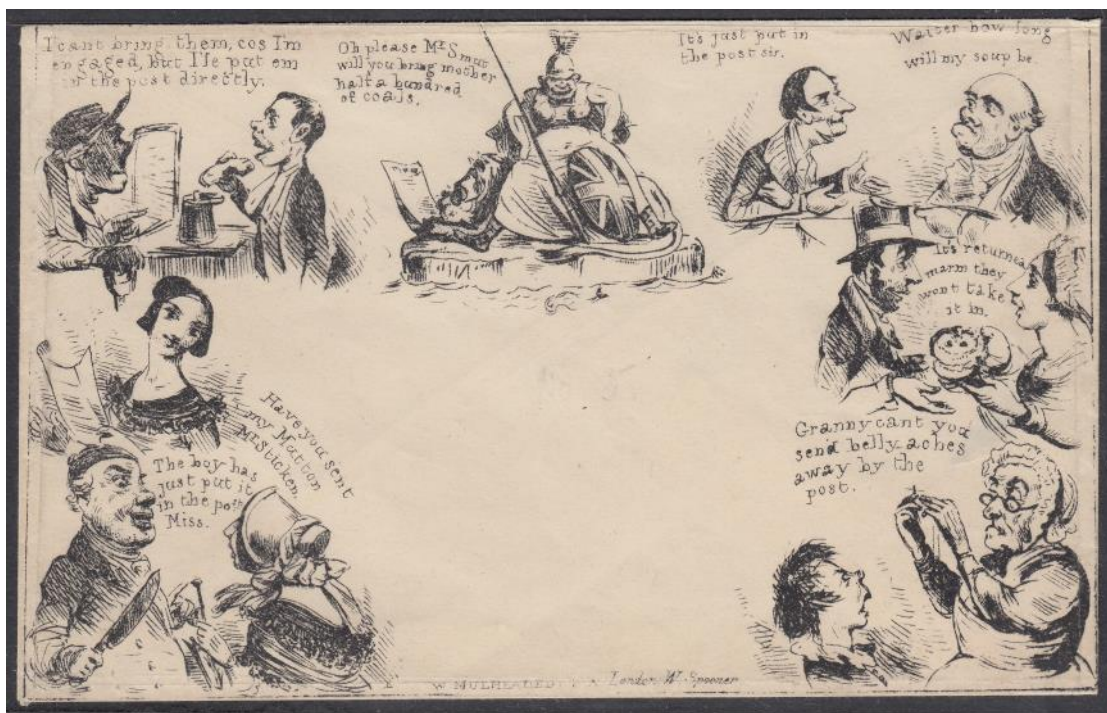 I cant bring them, cos Im
engaged, but I'le put em
in the post directly.
Oh please Mr Smut
will you bring mother
half a hundred
of coals.
It's just put in
the post sir.
Waiter how long
will my soup be.
It's returned
marm they
wont take
it in.
Have you sent
my Mutton
Mr Sticken.
The boy has
just put it
in the post
Miss.
Granny cant you
send belly aches
away by the
post.
W. MULHEADED
London, W. Spooner